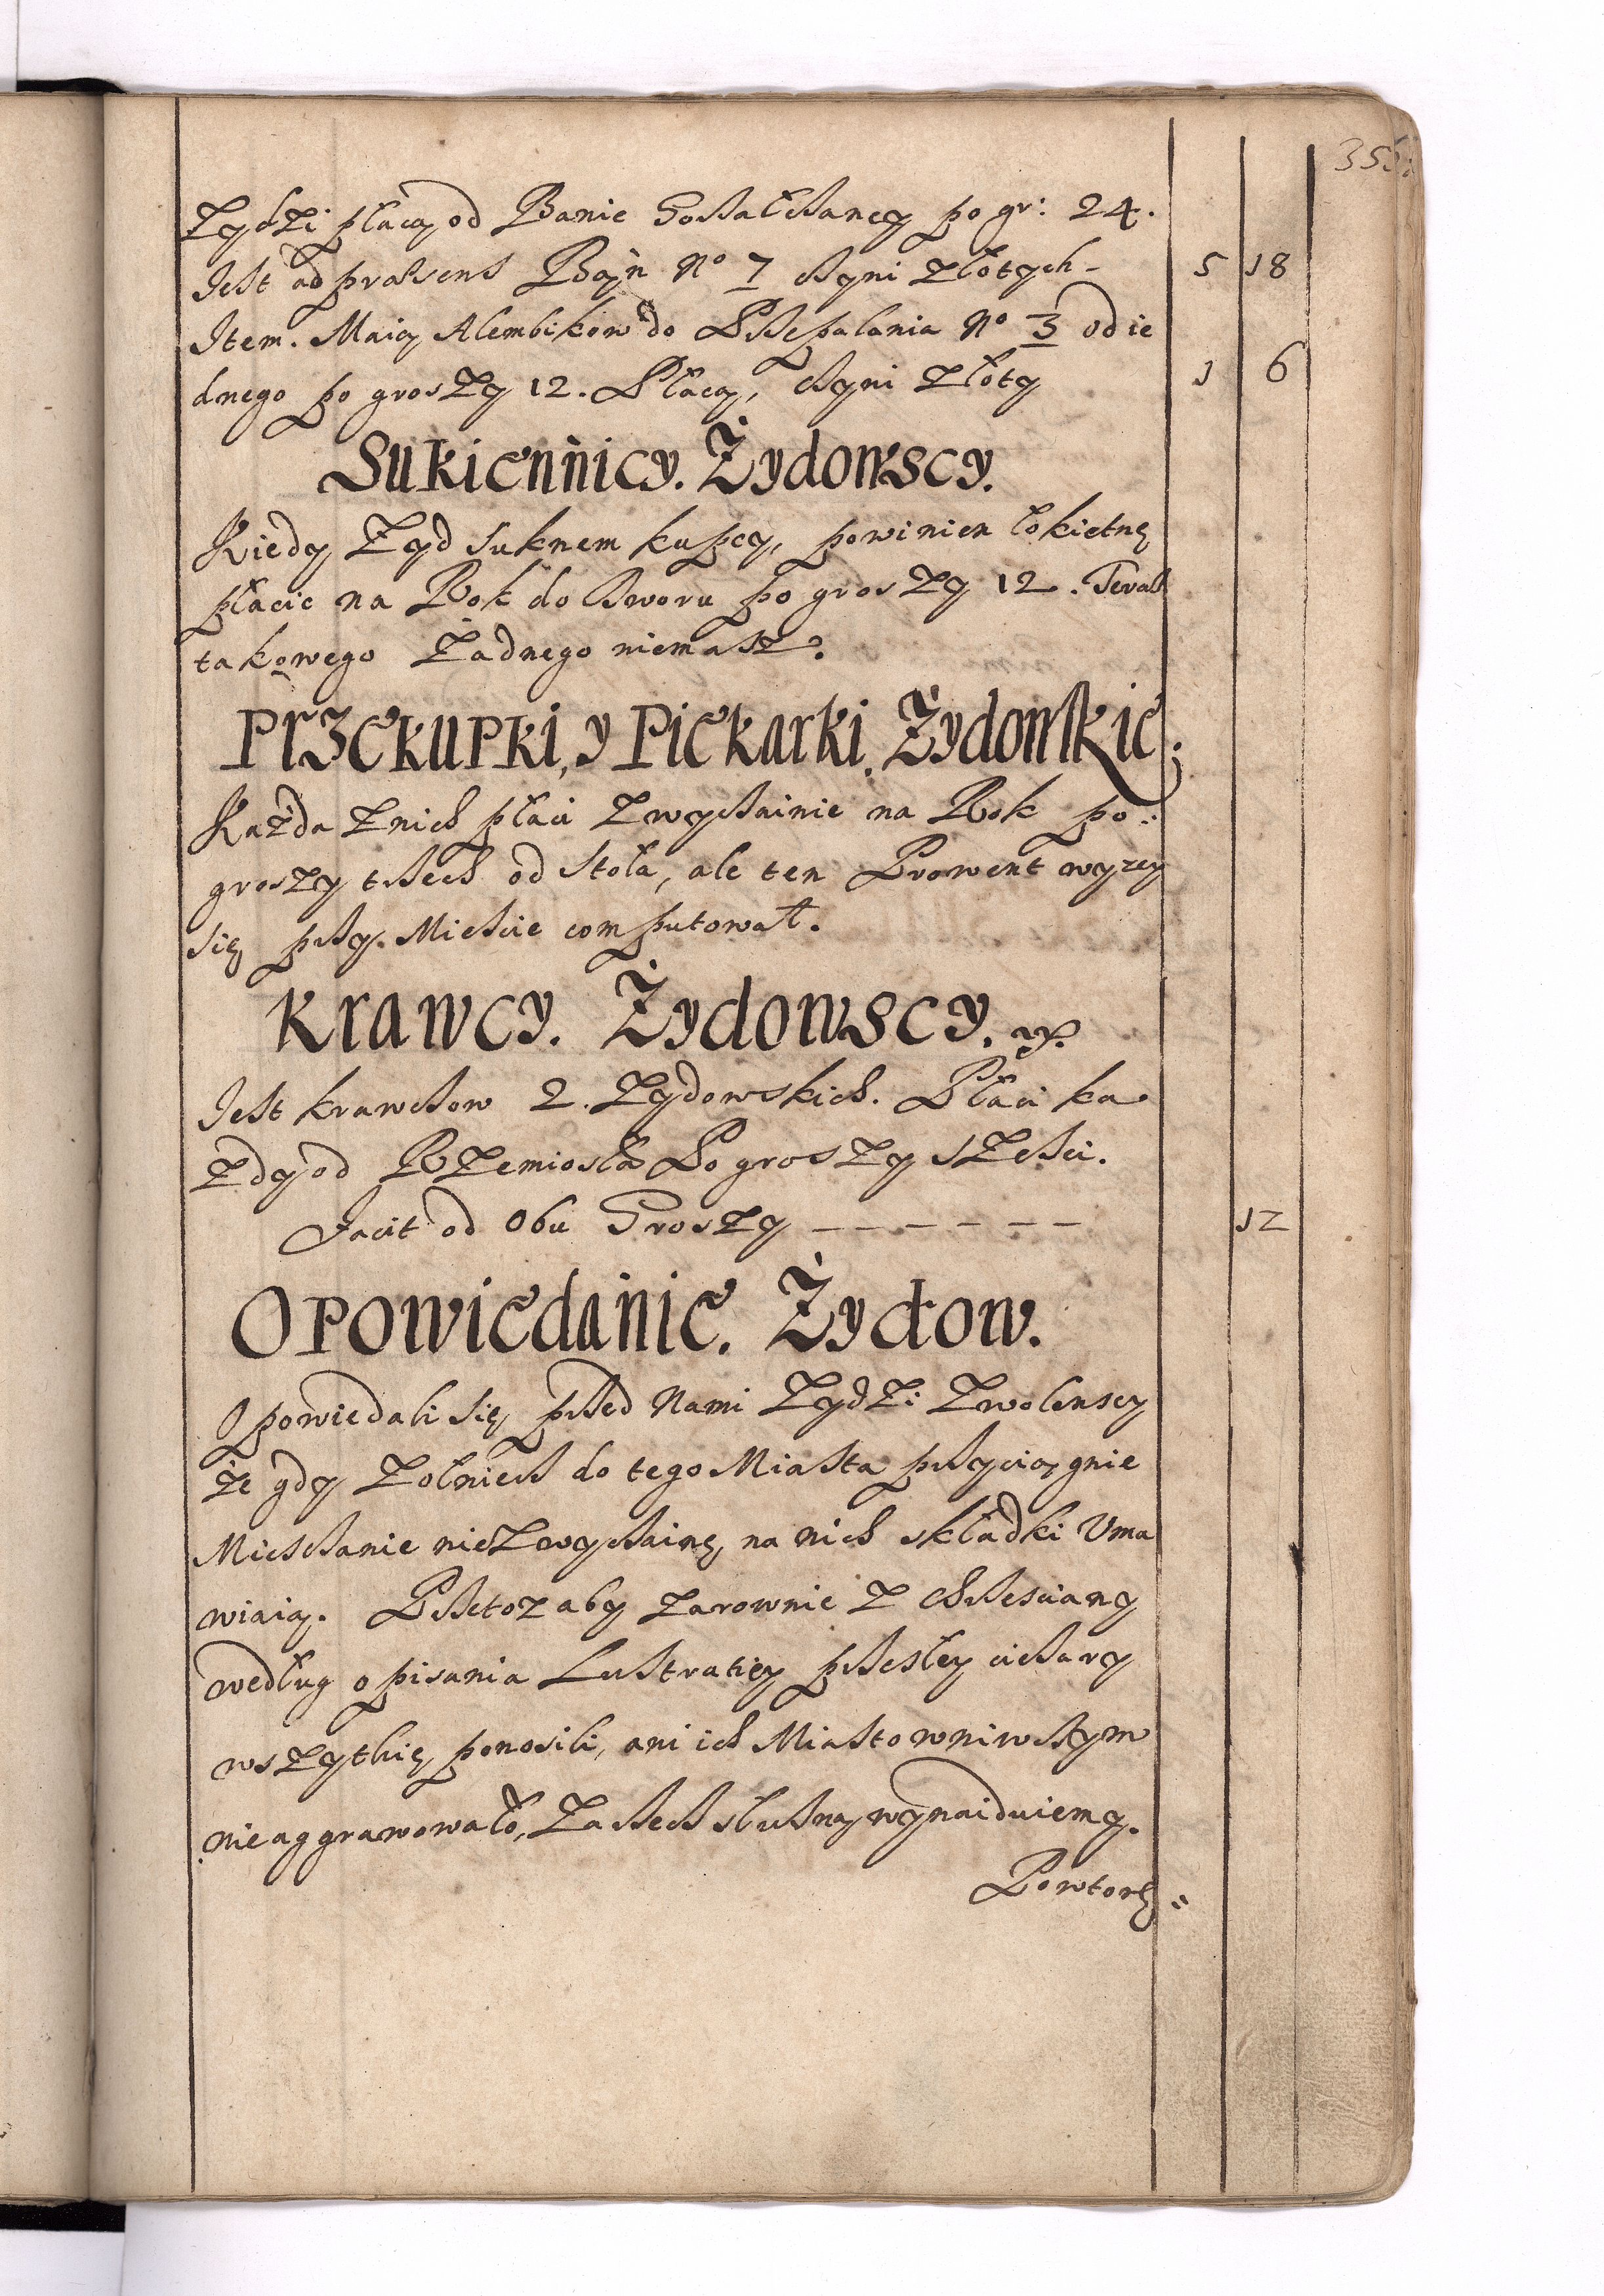 Zydzi płacą od Banie Gorzałczaney po gr: 24.
Jest ad præsens Bań No 7 czyni złotych - 5 18
Item. Maią Alembikow do Przepalania No 3 od ie
dnego po groszy 12. Płacą, czyni złoty 1 6
Sukiennicy. Żydowscy.
Kiedy Zyd suknem kupczy, powinien łokietnę
płacic na Rok do dworu po groszy 12. Teraz
takowego żadnego niemasz.
Przekupki, y Piekarki. Żydowskie;
Każda znich płaci zwyczainie na Rok po:
groszy trzech od stoła, ale ten Prowent wyzey
się przy. Miescie computował.
Krawcy. Żydowscy.
Jest krawczow 2. Zydowskich. Płaci ka
zdy od Rzemiosła Po groszy szesci.
Facit od Obu Groszy — — — — — — 12
Opowiedanie. Żydow.
Opowiedali się przed Nami Zydzi Zwolenscy
że gdy Zołnierz do tego Miasta przyciągnie
Miesczanie niezwyczainę, na nich składki Vma
wiaią. Przetoz aby zarownie z chrzesciany
według opisania Lustratiey przeszłey ciezary
wszytkię, ponosili, ani ich Miasto wniwczym
nie aggrawowało, za rzecz słuszną wynaiduiemy.
Powtorę =